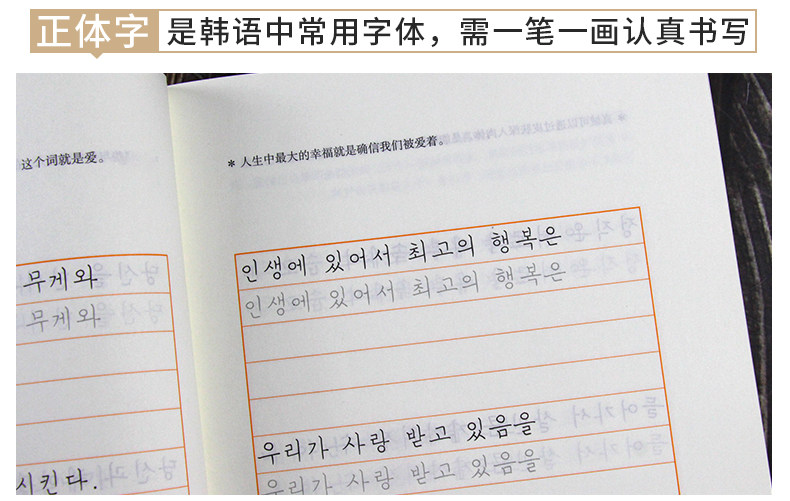 正体字 是韩语中常用字体，需一笔一画认真书写
这个词就是爱。
무게와
무게와
시킨다.
* 人生中最大的幸福就是确信我们被爱着。
인생에 있어서 최고의 행복은
인생에 있어서 최고의 행복은
우리가 사랑 받고 있음을
우리가 사랑 받고 있음을